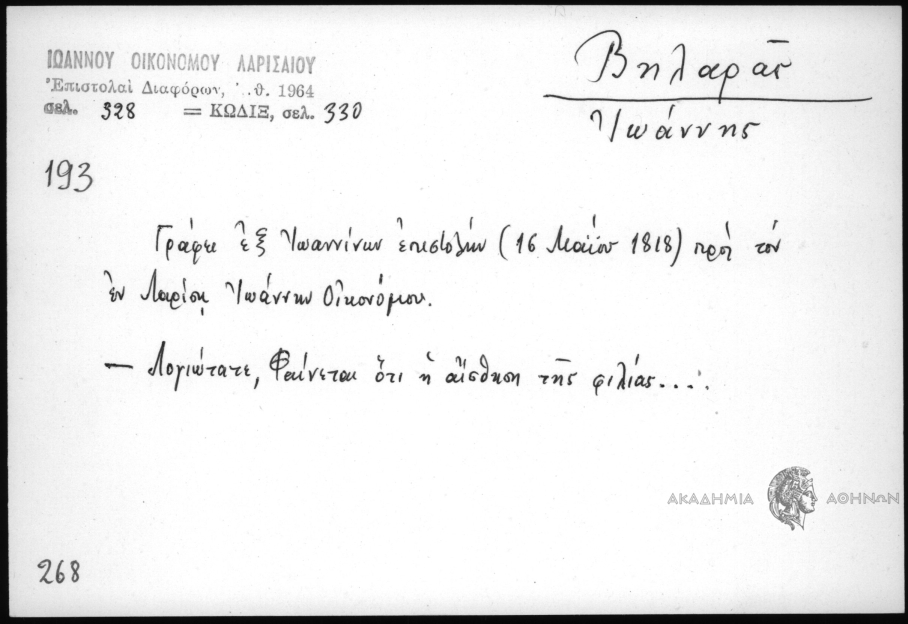 ΙΩΑΝΝΟΥ ΟΙΚΟΝΟΜΟΥ ΛΑΡΙΣΑΙΟΥ
Ἐπιστολαὶ Διαφόρων, θ. 1964
σελ. 328 = ΚΩΔΙΞ, σελ. 330
Βηλαρᾶς
Ἰωάννης
193
Γράφει ἐξ Ἰωαννίνων ἐπιστολήν (16 Μαΐου 1818) πρὸς τὸν
ἐν Λαρίσῃ Ἰωάννην Οἰκονόμου.
— Λογιώτατε, Φαίνεται ὅτι ἡ αἴσθηση τῆς φιλίας....
ΑΚΑΔΗΜΙΑ ΑΘΗΝΩΝ
268